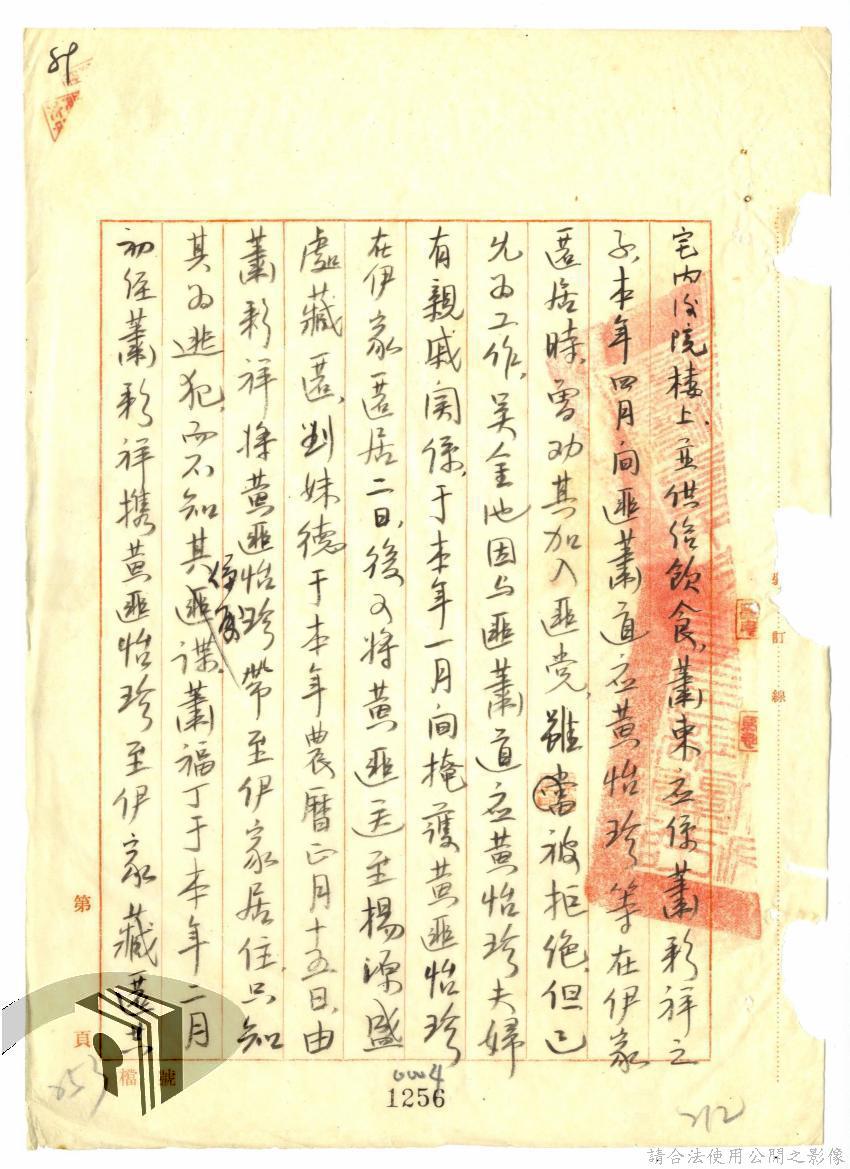 宅内後院樓上，並供給飲食，蕭東应係蕭彩祥之
子，本年四月间匪蕭道应黄怡珍等在伊家
匿居時，曾劝其加入匪党，雖當被拒绝，但已
允为工作，吴金池因与匪蕭道应黄怡珍夫婦
有親戚関係，于本年一月间掩護黄匪怡珍
在伊家匿居二日，後又将黄匪送至楊源盛
處藏匿，刘妹德于本年農曆正月十五日，由
蕭彩祥将黄匪怡珍帶至伊家居住，只知
其为逃犯，而不知其匪谍，蕭福丁于本年二月
初经蕭彩祥携黄匪怡珍至伊家藏匿其
裝訂線
第
頁
檔號
0004
1256
212
請合法使用公開之影像